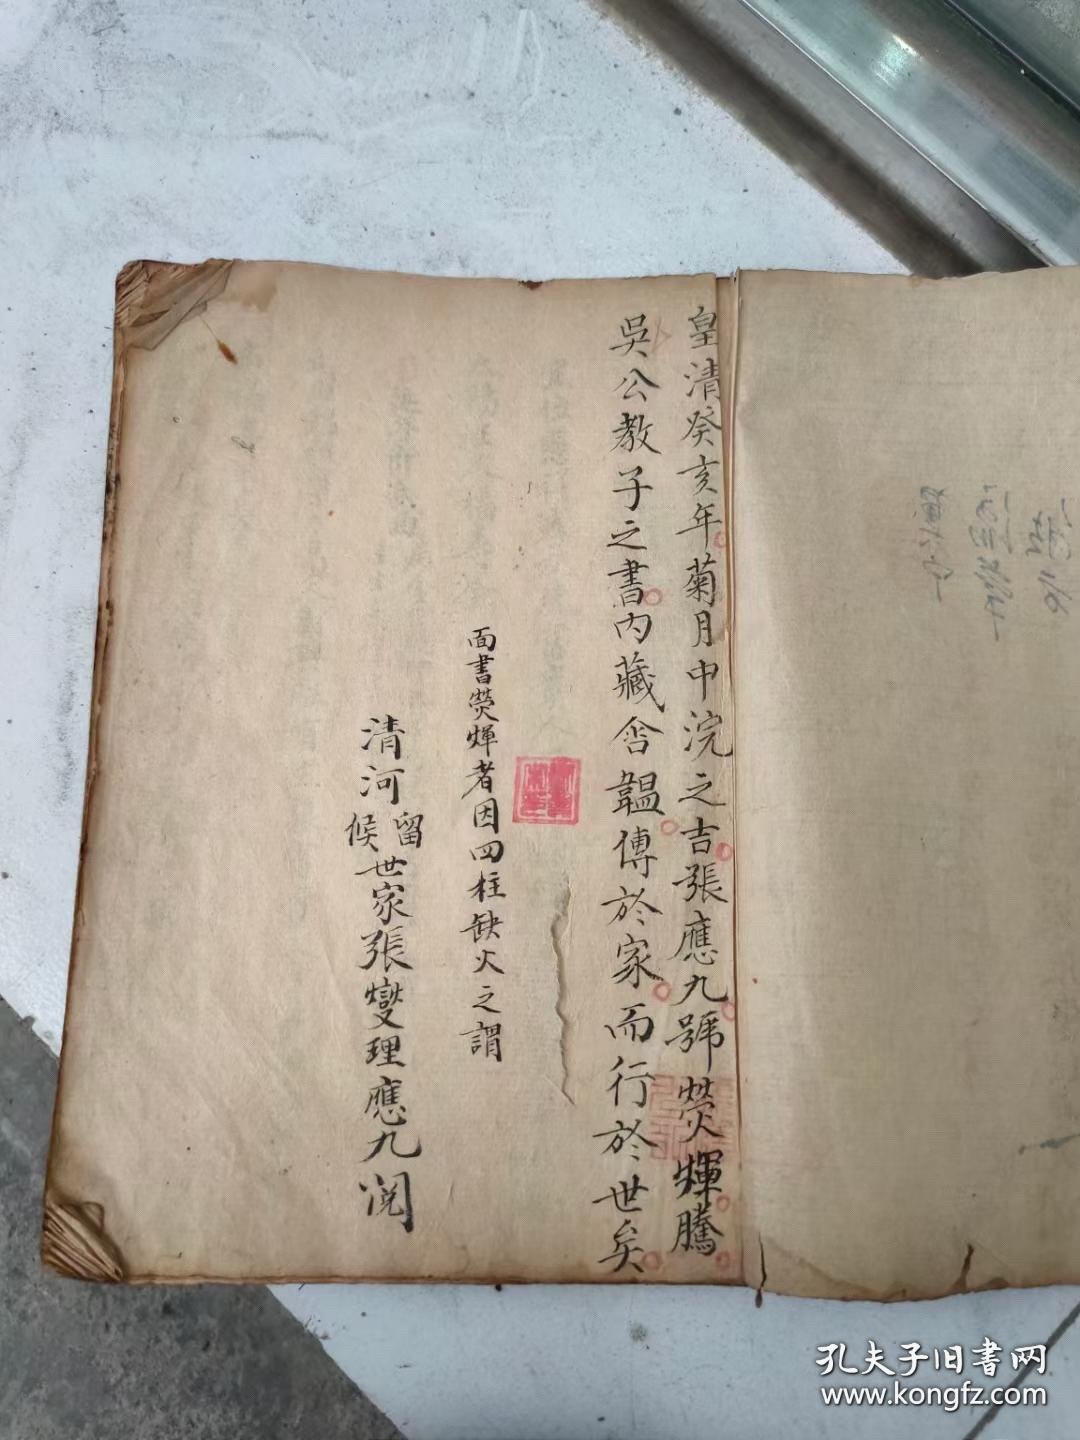 皇清癸亥年菊月中浣之吉張應九號熒煇騰
吳公教子之書內藏含韞傳於家而行於世矣
面書熒煇者因四柱缺火之謂
清河留候世家張燮理應九閱
孔夫子旧书网
www.kongfz.com